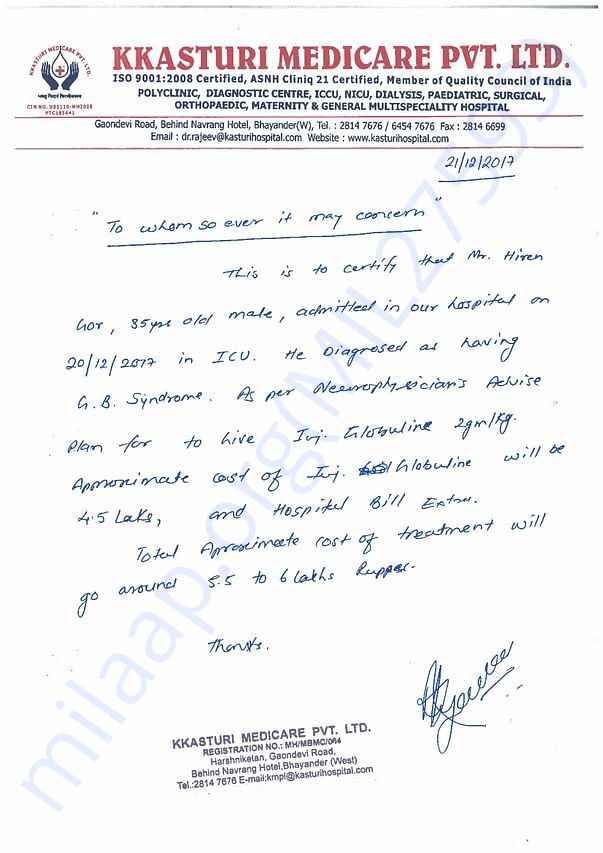 KKASTURI MEDICARE PVT. LTD.
ISO 9001:2008 Certified, ASNH Cliniq 21 Certified, Member of Quality Council of India
POLYCLINIC, DIAGNOSTIC CENTRE, ICCU, NICU, DIALYSIS, PAEDIATRIC, SURGICAL,
ORTHOPAEDIC, MATERNITY & GENERAL MULTISPECIALITY HOSPITAL
KASTURI MEDICARE PVT. LTD.
CIN NO. U85110-MH2008
PTC185641
Gaondevi Road, Behind Navrang Hotel, Bhayander(W), Tel. : 2814 7676 / 6454 7676 Fax : 2814 6699
Email : dr.rajeev@kasturihospital.com Website : www.kasturihospital.com
21/12/2017
"To whom so ever it may concern"
This is to certify that Mr. Hiren
Gor, 35yrs old male, admitted in our hospital on
20/12/2017 in ICU. He Diagnosed as having
G.B. Syndrome. As per Neurophysician's Advise
Plan for to Give Inj. Globuline 2gm/kg.
Approximate cost of Inj. Globuline will be
4.5 Laks, and Hospital Bill Extra.
Total Aproximate cost of treatment will
go around 5.5 to 6 lakhs Ruppes.
Thanks.
KKASTURI MEDICARE PVT. LTD.
REGISTRATION NO.: MH/MBMC/064
Harshniketan, Gaondevi Road,
Behind Navrang Hotel, Bhayander (West)
Tel.:2814 7676 E-mail:kmpl@kasturihospital.com
milaap.org(MIL275959)